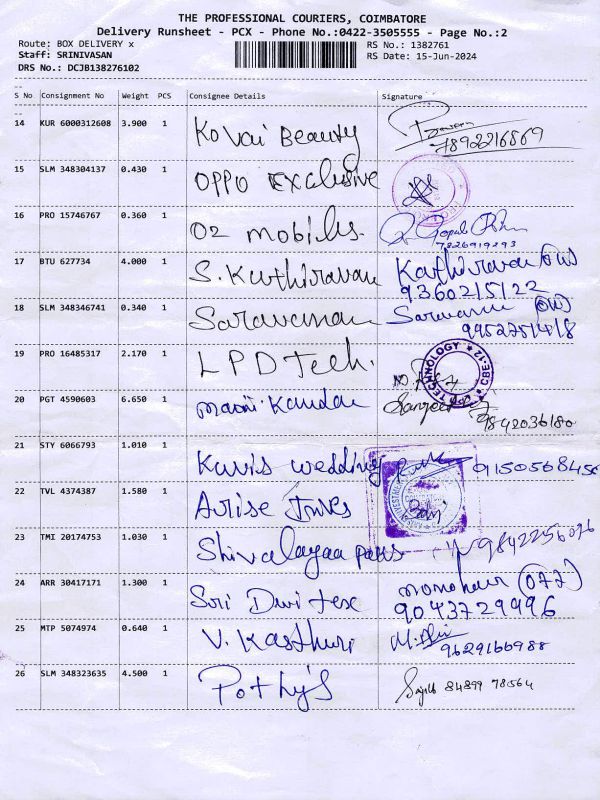 THE PROFESSIONAL COURIERS, COIMBATORE
Delivery Runsheet - PCX - Phone No.:0422-3505555 - Page No.:2
Route: BOX DELIVERY x
RS No.: 1382761
Staff: SRINIVASAN
RS Date: 15-Jun-2024
DRS No.: DCJB138276102
S No Consignment No Weight PCS Consignee Details Signature
14 KUR 6000312608 3.900 1 Kovai Beauty
7892216869
15 SLM 348304137 0.430 1 OPPO Exclusive
16 PRO 15746767 0.360 1 O2 mobiles.
7826919293
17 BTU 627734 4.000 1 S. Kathiravan Kathiravan
9360215122
18 SLM 348346741 0.340 1 Saravanan
9952751418
19 PRO 16485317 2.170 1 LPD Tech.
LPD TECHNOLOGY CBE-12
20 PGT 4590603 6.650 1 Mani Kandan Sanjeev
9842036180
21 STY 6066793 1.010 1 Kavis wedding 9150568456
22 TVL 4374387 1.580 1 Arise Invs
23 TMI 20174753 1.030 1 Shivalayaa 9842256096
24 ARR 30417171 1.300 1 Sri Dwi tex
9043729996
25 MTP 5074974 0.640 1 V. Kasthuri
9629166988
26 SLM 348323635 4.500 1 Pothy's 84899 78564